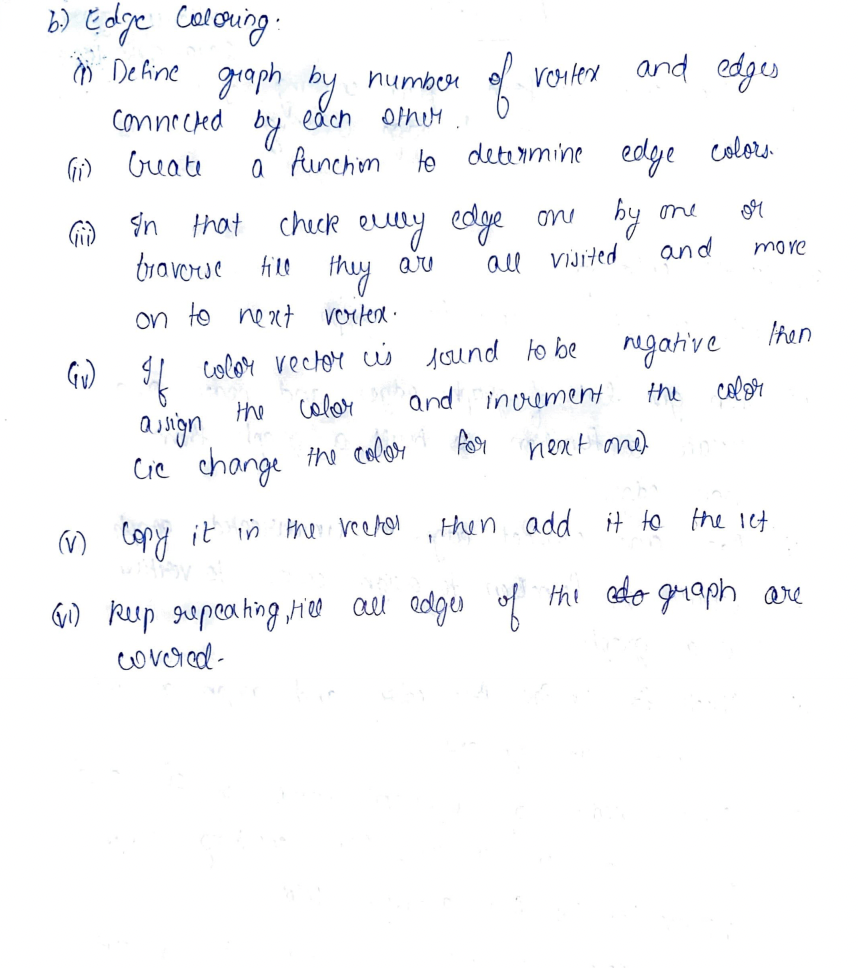 b.) Edge Coloring.
(i) Define graph by number of vertex and edges
connected by each other.
(ii) Create a function to determine edge colors.
(iii) In that check every edge one by one or
traverse till they are all visited and move
on to next vertex.
(iv) If color vector is found to be negative then
assign the color and increment the color
(ie change the color for next one)
(v) Copy it in the vector, then add it to the set
(vi) Keep repeating, till all edges of the graph are
covered.